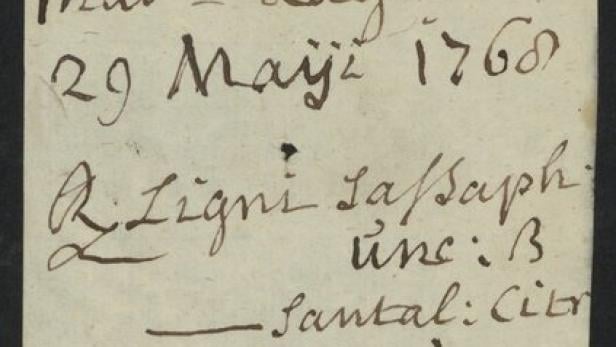 29 Maÿi 1768
℞. Ligni Sassaph.
unc: ß
— Santal: Citr